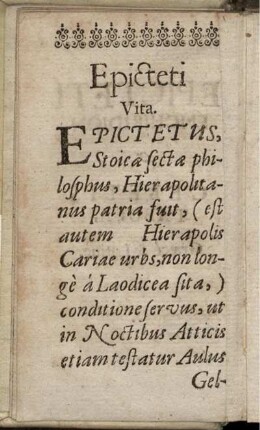 Epicteti
Vita.
EPICTETUS,
Stoicæ sectæ phi-
losphus, Hierapolita-
nus patria fuit, (est
autem Hierapolis
Cariae urbs, non lon-
gè á Laodicea sita,)
conditione servus, ut
in Noctibus Atticis
etiam testatur Aulus
Gel-